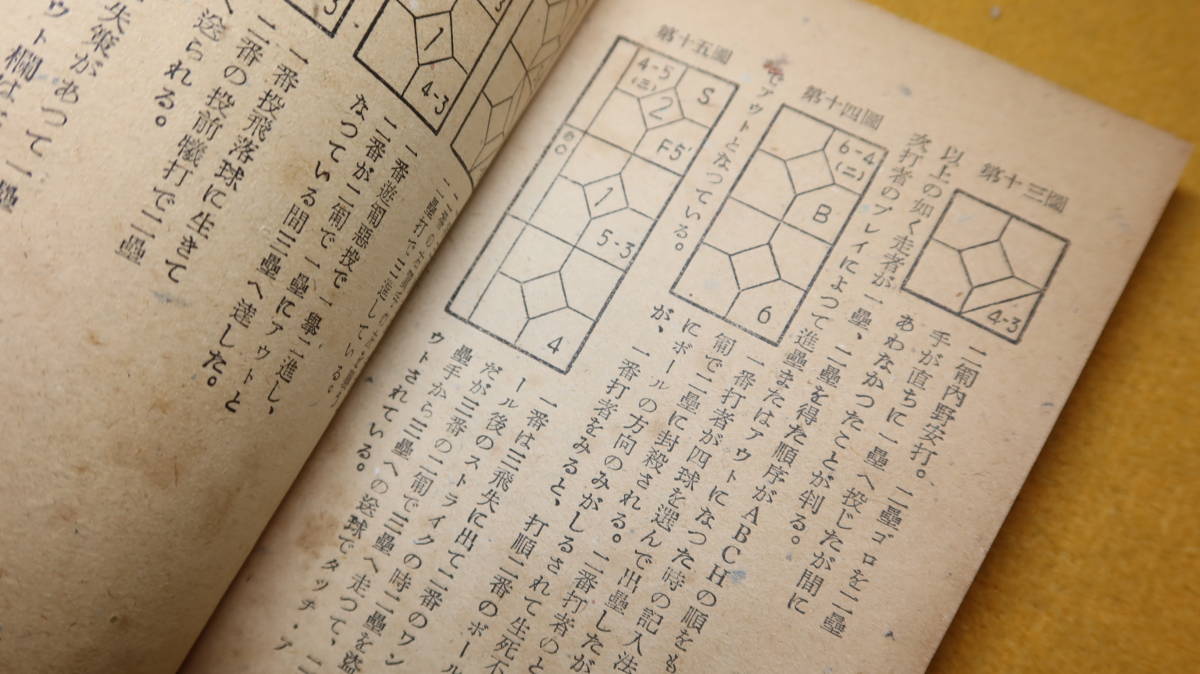 第十三圖
4-3
二匍內野安打。二壘ゴロを二壘
手が直ちに一壘へ投じたが間に
あわなかつたことが判る。
以上の如く走者が一壘、二壘を得た順序がABCHの順をも
次打者のプレイによつて進壘またはアウトになつた時の記入法
第十四圖
6-4
(二)
B
6
一番打者が四球を選んで出壘したが
匍で二壘に封殺される。二番打者の
にボールの方向のみがしるされて生死不
が、一番打者をみると、打順二番のボール
でアウトとなつている。
第十五圖
4-5
(三)
S
2
F5'
C
1
5-3
4
一番は三飛失に出て二番のワン
ール後のストライクの時二壘を盜
だが三番の二匍で三壘へ走つて、二
壘手から三壘への送球でタツチ・ア
ウトされている。
二壘打で三進している
一番遊匍惡投で一擧二進し、
二番が二匍で一壘にアウトと
なつている間三壘へ達した。
1
4-3
一番投飛落球に生きて
二番の投前犠打で二壘
へ送られる。
失策があつて一壘
ウト欄は